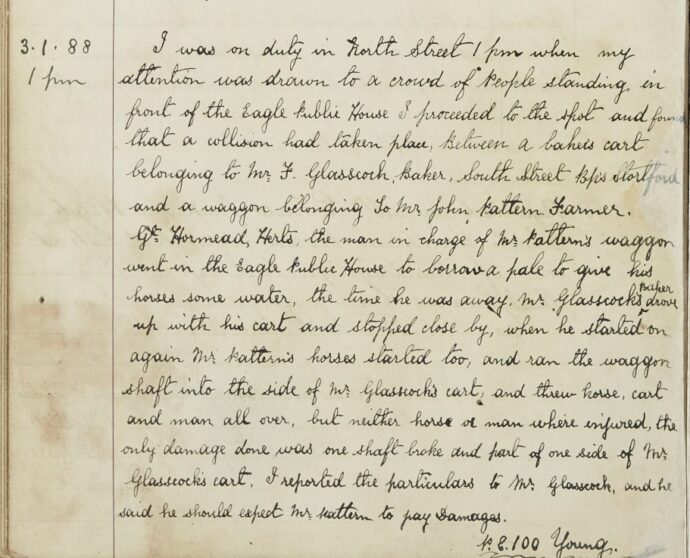 3.1.88
1 pm
I was on duty in North Street 1 pm when my
attention was drawn to a crowd of People standing, in
front of the Eagle Public House I proceeded to the spot and found
that a collision had taken place, Between a bakers cart
belonging to Mr. F. Glasscock, Baker, South Street Bp's Stortford
and a waggon belonging To Mr. John Pattern Farmer.
Gt. Hormead, Herts, the man in charge of Mr Pattern's waggon
went in the Eagle Public House to borrow a pale to give his
horses some water, the time he was away, Mr Glasscock's Baker drove
up with his cart and stopped close by, when he started on
again Mr. Pattern's horses started too, and ran the waggon
shaft into the side of Mr Glasscock's cart, and threw horse, cart
and man all over, but neither horse or man where injured, the
only damage done was one shaft broke and part of one side of Mr
Glasscock's cart, I reported the particulars to Mr. Glasscock, and he
said he should expect Mr. Pattern to pay Damages.
P.C.100 Young.